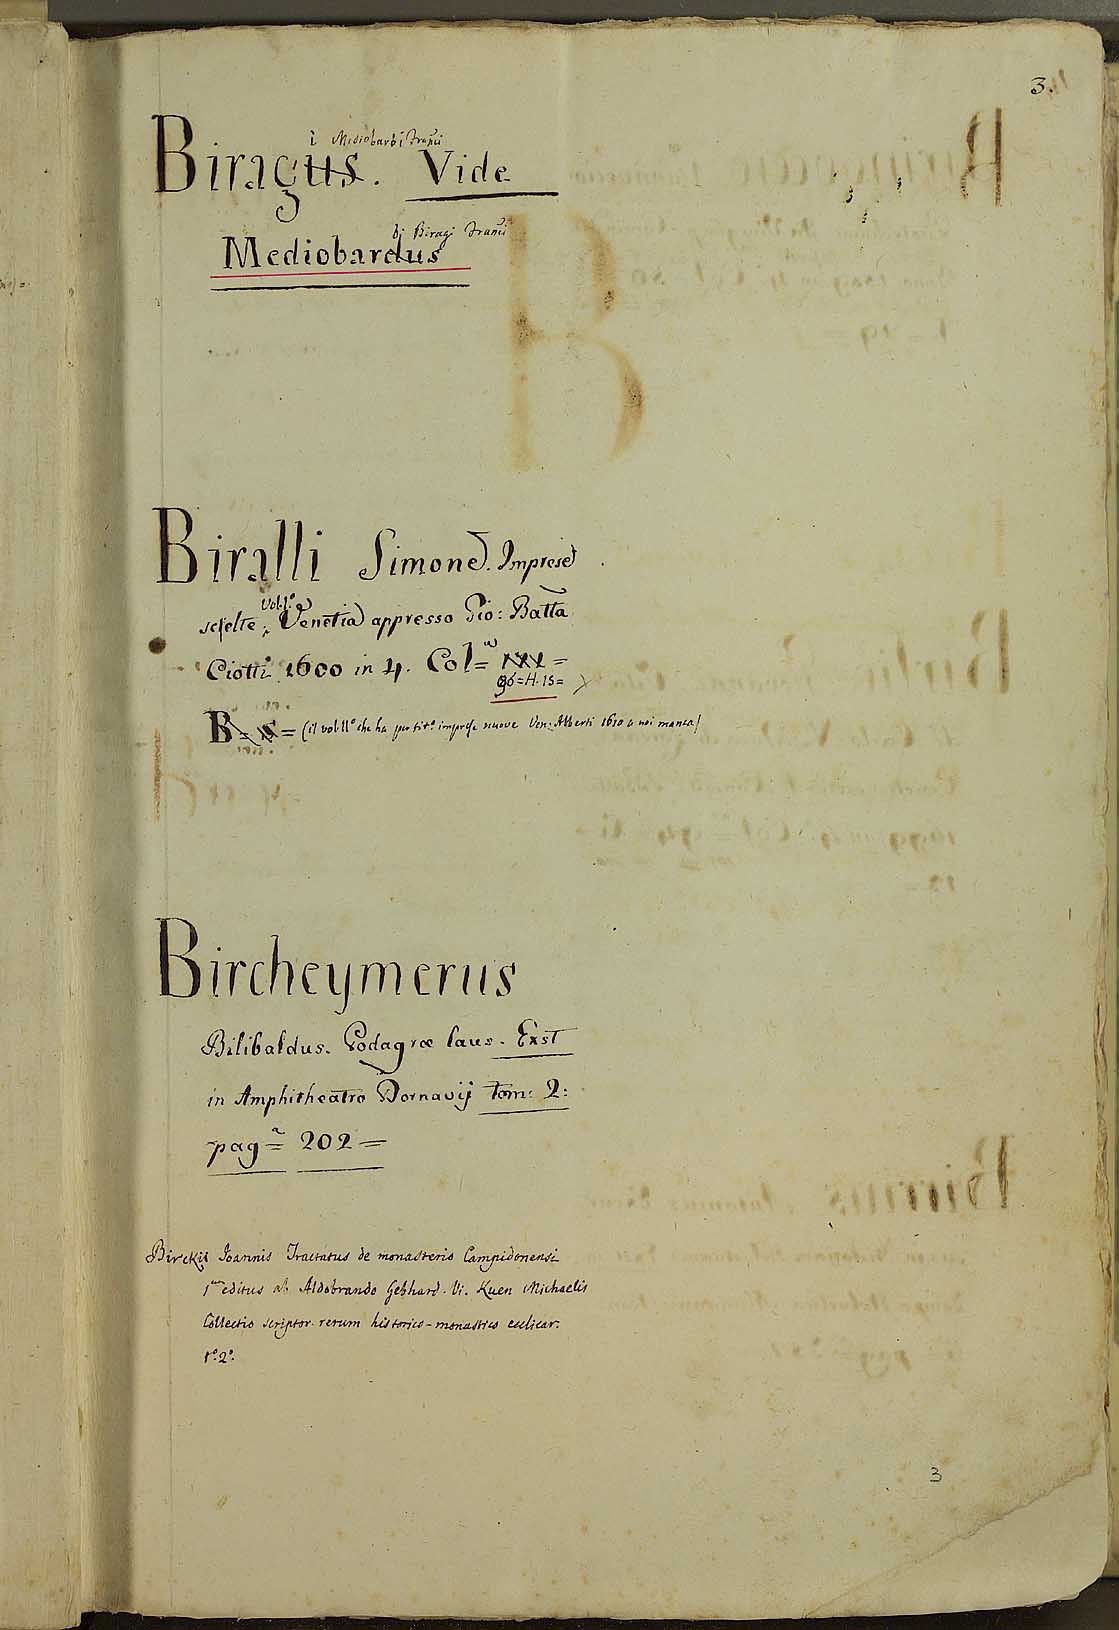 3.
i Mediobarbi Franci
Biragus. Vide
bi Biragi Franci
Mediobardus
Biralli Simone. Imprese
scielte, vol. 1.º Venetia appresso Gio: Batta
Ciotti 1600 in 4. Col=a XXI =
96=H.15=
B= S= (il vol. II.º che ha per tit.º imprese nuove Ven: Alberti 1610 a noi manca)
Bircheymerus
Bilibaldus. Podagræ laus. Exst
in Amphitheatro Dornavij tom: 2:
pag=a 202=
Birckii Joannis Tractatus de monasterio Campidonensi
1um editus ab Aldobrando Gebhard. Vi. Kuen Michaelis
Collectio scriptor. rerum historico-monastico ecclicar:
1.º 2.º
3